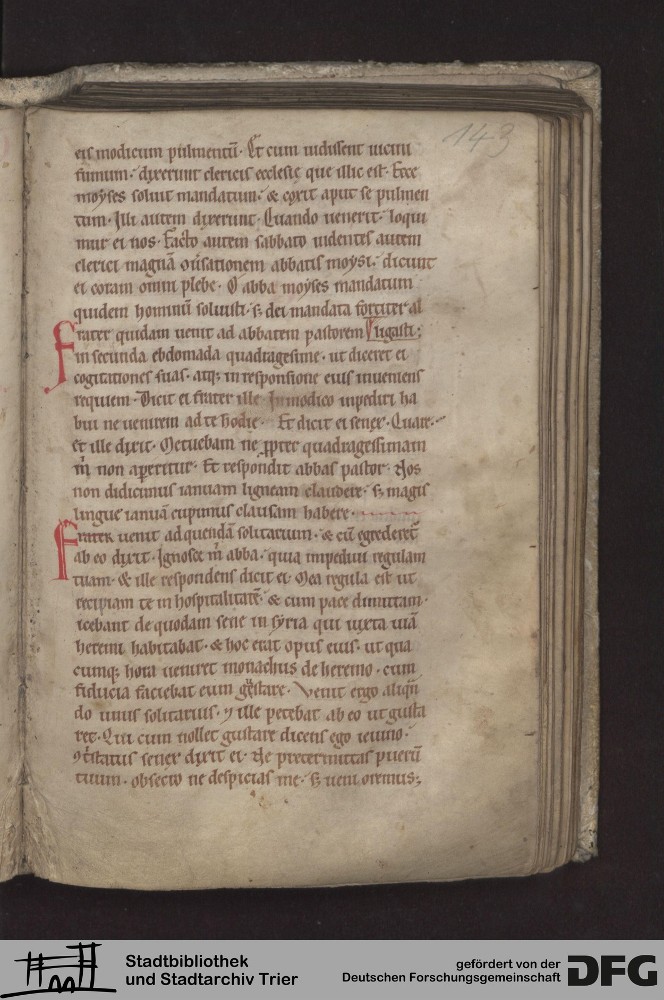 143
eis modicum pulmentū. Et cum uidissent uicini
fumum. dixerunt clericis ecclesie que illic est. Ecce
moyses soluit mandatum. & coxit aput se pulmen
tum. Illi autem dixerunt. Quando uenerit. loqui
mur ei nos. Facto autem sabbato uidentes autem
clerici magnā cōuersationem abbatis moysi. dicunt
ei coram omni plebe. O abba moyses mandatum
quidem hominū soluisti. s; dei mandata fortiter al
Frater quidam uenit ad abbatem pastorem ligasti;
in secunda ebdomada quadragesime. ut diceret ei
cogitationes suas. atq; in responsione eius inueniens
requiem. Dicit ei frater ille. In modico inpediti ha
bui ne uenirem ad te hodie. Et dicit ei senex. Quare.
et ille dixit. Metuebam ne ꝓpter quadragesimam
m̄ non aperitur. Et respondit abbas pastor. Nos
non didicimus ianuam ligneam claudere. s; magis
lingue ianuā cupimus clausam habere.
Frater uenit ad quendā solitarium. & cū egrederet̄
ab eo dixit. Ignosce m̄ abba. quia impediui regulam
tuam. & ille respondens dicit ei. Mea regula est ut
recipiam te in hospitalitatē & cum pace dimittam.
icebant de quodam sene in syria qui iuxta uiā
heremi habitabat. & hoc erat opus eius. ut qua
cumq; hora ueniret monachus de heremo. cum
fiducia faciebat eum gustare. Venit ergo aliqn̄
do unus solitarius. ⁊ ille petebat ab eo ut gusta
ret. Qui cum nollet gustare dicens ego ieiuno.
ꝯtristatus senex dixit ei. Ne pretermittas puerū
tuum. obsecro ne despicias me. s; ueni oremus;
Stadtbibliothek
und Stadtarchiv Trier
gefördert von der
Deutschen Forschungsgemeinschaft
DFG